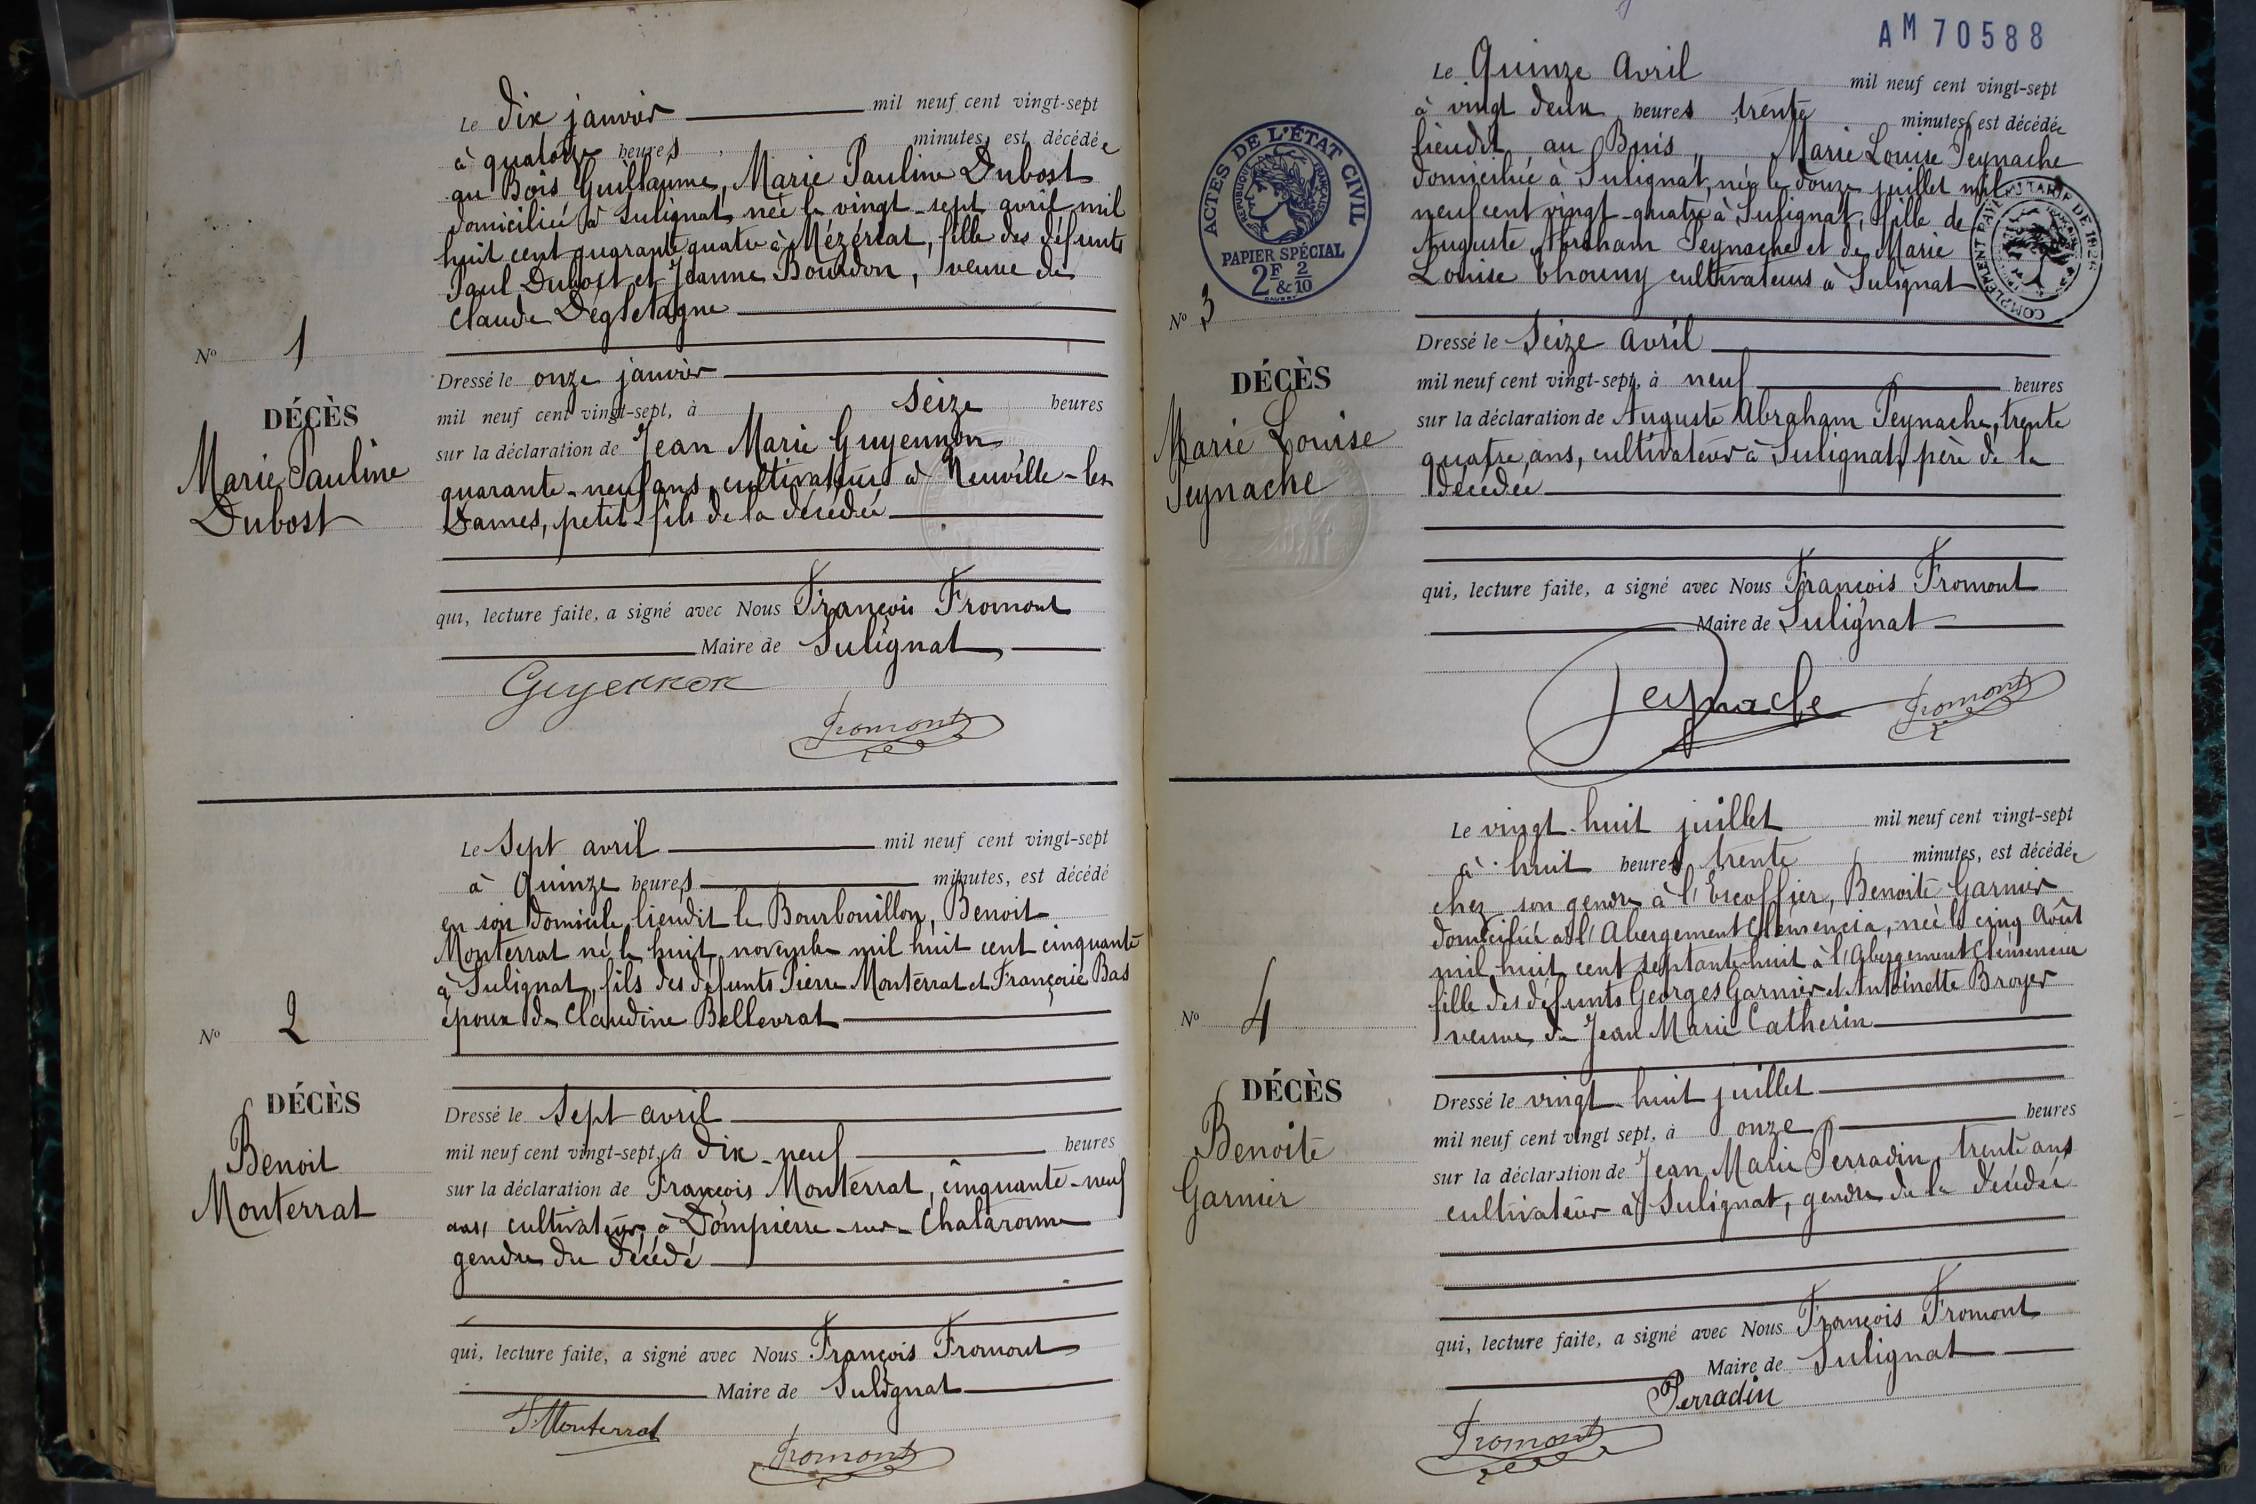 Le dix janvier mil neuf cent vingt-sept
à quatorze heures minutes, est décédée
au Bois Guillaume, Marie Pauline Dubost
domiciliée à Sulignat, née le vingt-sept avril mil
huit cent quarante quatre à Mézériat, fille des défunts
Paul Dubost et Jeanne Bourdon, veuve de
Claude Dégletagne
No 1
Dressé le onze janvier
mil neuf cent vingt-sept, à seize heures
DÉCÈS
Marie Pauline
Dubost
sur la déclaration de Jean Marie Guyennon
quarante-neuf ans, cultivateur à Neuville-les-
Dames, petit-fils de la décédée
qui, lecture faite, a signé avec Nous François Fromont
Maire de Sulignat
Guyennon
Fromont
Le Sept avril mil neuf cent vingt-sept
à Quinze heures minutes, est décédé
en son domicile, lieudit le Bourbouillon, Benoit
Monterrat né le huit novembre mil huit cent cinquante
à Sulignat, fils des défunts Pierre Monterrat et Françoise Bas
époux de Claudine Bellevrat
No 2
DÉCÈS
Benoit
Monterrat
Dressé le Sept avril
mil neuf cent vingt-sept, à dix-neuf heures
sur la déclaration de François Monterrat, cinquante-neuf
ans, cultivateur à Dompierre-sur-Chalaronne
gendre du décédé
qui, lecture faite, a signé avec Nous François Fromont
Maire de Sulignat
F Monterrat
Fromont
AM 70588
Le Quinze avril mil neuf cent vingt-sept
à vingt deux heures trente minutes, est décédée
lieudit au Buis, Marie Louise Peynache
domiciliée à Sulignat, née le douze juillet mil
neuf cent vingt-quatre à Sulignat, fille de
Auguste Abraham Peynache et de Marie
Louise Chouny cultivateurs à Sulignat
ACTES DE L'ÉTAT CIVIL
RÉPUBLIQUE FRANÇAISE
PAPIER SPÉCIAL
2F & 2/10
COMPLÉMENT PAYÉ TARIF DE 1926
No 3
DÉCÈS
Marie Louise
Peynache
Dressé le Seize avril
mil neuf cent vingt-sept, à neuf heures
sur la déclaration de Auguste Abraham Peynache, trente
quatre ans, cultivateur à Sulignat, père de la
décédée
qui, lecture faite, a signé avec Nous François Fromont
Maire de Sulignat
Peynache
Fromont
Le vingt-huit juillet mil neuf cent vingt-sept
à huit heures trente minutes, est décédée
chez son gendre à l'Escoffier, Benoite Garnier
domiciliée à l'Abergement Clémencia, née le cinq Août
mil huit cent septante-huit à l'Abergement Clémencia
fille des défunts Georges Garnier et Antoinette Broyer
veuve de Jean Marie Catherin
No 4
DÉCÈS
Benoite
Garnier
Dressé le vingt-huit juillet
mil neuf cent vingt sept, à onze heures
sur la déclaration de Jean Marie Perradin, trente ans
cultivateur à Sulignat, gendre de la décédée
qui, lecture faite, a signé avec Nous François Fromont
Maire de Sulignat
Perradin
Fromont